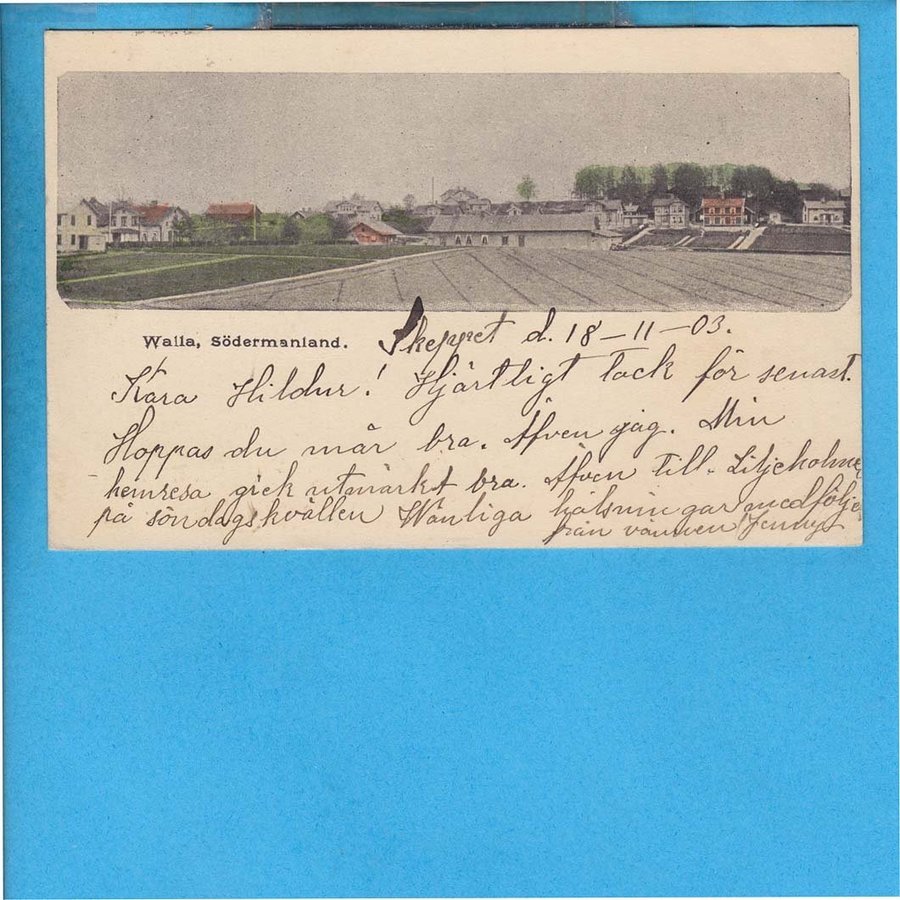 Walla, Södermanland.
Skeppet d. 18-11-03.
Kära Hildur! Hjärtligt tack för senast.
Hoppas du mår bra. Äfven jag. Min
hemresa gick utmärkt bra. Äfven till Liljeholme
på söndagskvällen Wänliga hälsningar medfölje
från vännen Jenny